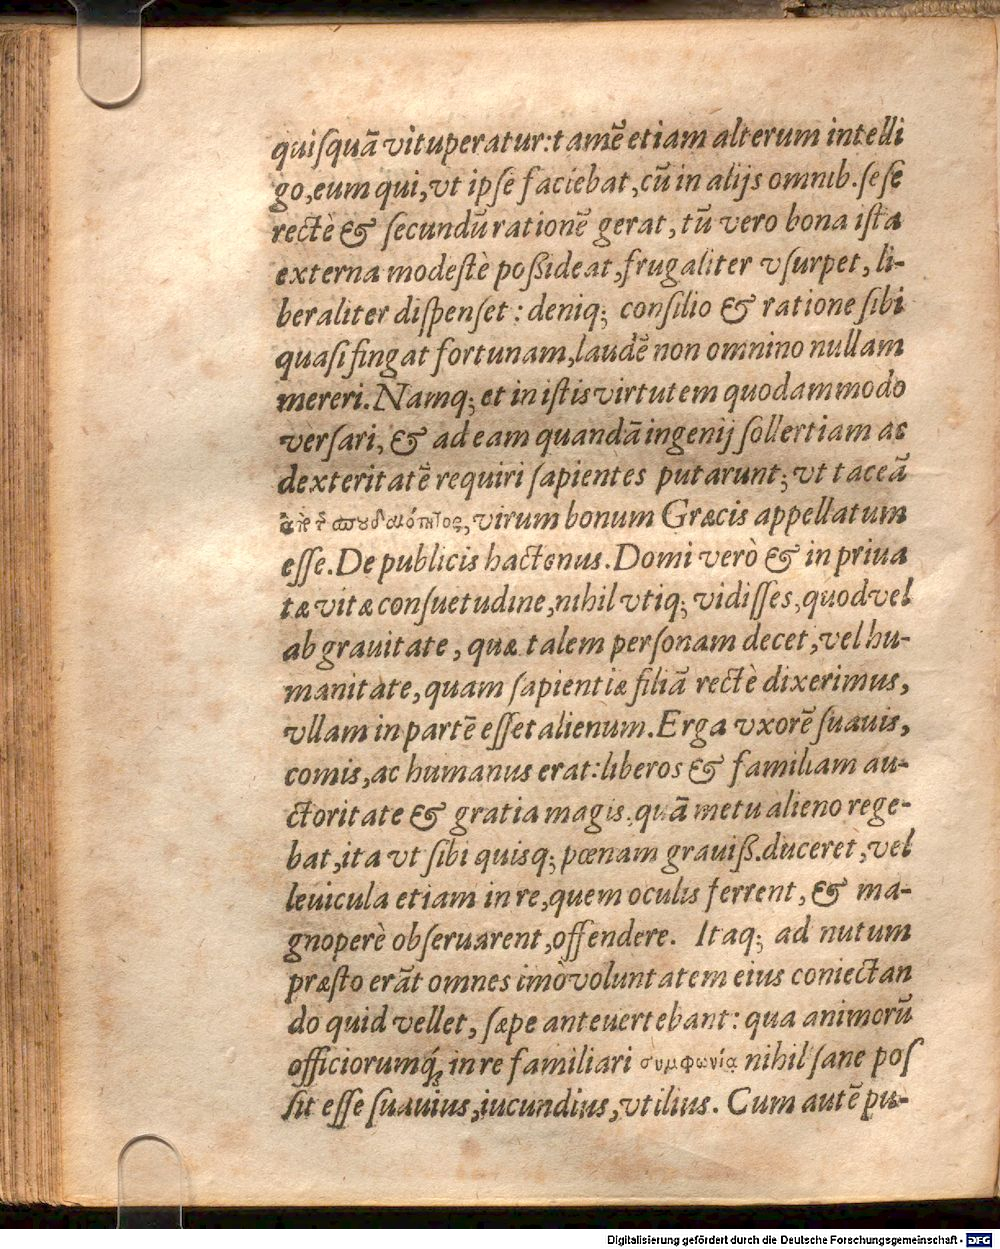 quiſquã vituperatur: tamẽ etiam alterum intelli
go, eum qui, vt ipſe faciebat, cũ in alijs omnib. ſeſe
rectè & ſecundũ rationẽ gerat, tũ vero bona iſta
externa modeſtè poßideat, frugaliter vſurpet, li-
beraliter diſpenſet: deniq; conſilio & ratione ſibi
quaſi fingat fortunam, laudẽ non omnino nullam
mereri. Namq; et in iſtis virtutem quodammodo
verſari, & ad eam quandã ingenij ſollertiam ac
dexteritatẽ requiri ſapientes putarunt; vt taceã
σπουδαιότητος, virum bonum Græcis appellatum
eſſe. De publicis hactenus. Domi verò & in priua
tæ vitæ conſuetudine, nihil vtiq; vidiſſes, quod vel
ab grauitate, quæ talem perſonam decet, vel hu-
manitate, quam ſapientiæ filiã rectè dixerimus,
vllam in partẽ eſſet alienum. Erga vxorẽ ſuauis,
comis, ac humanus erat: liberos & familiam au-
ctoritate & gratia magis, quã metu alieno rege-
bat, ita vt ſibi quisq; pœnam grauiß. duceret, vel
leuicula etiam in re, quem oculis ferrent, & ma-
gnoperè obſeruarent, offendere. Itaq; ad nutum
præſto erãt omnes imò voluntatem eius coniectan
do quid vellet, ſæpe anteuertebant: qua animorũ
officiorumq́; in re familiari συμφωνίᾳ nihil ſane poſ
ſit eſſe ſuauius, iucundius, vtilius. Cum autẽ pu-
Digitalisierung gefördert durch die Deutsche Forschungsgemeinschaft - DFG